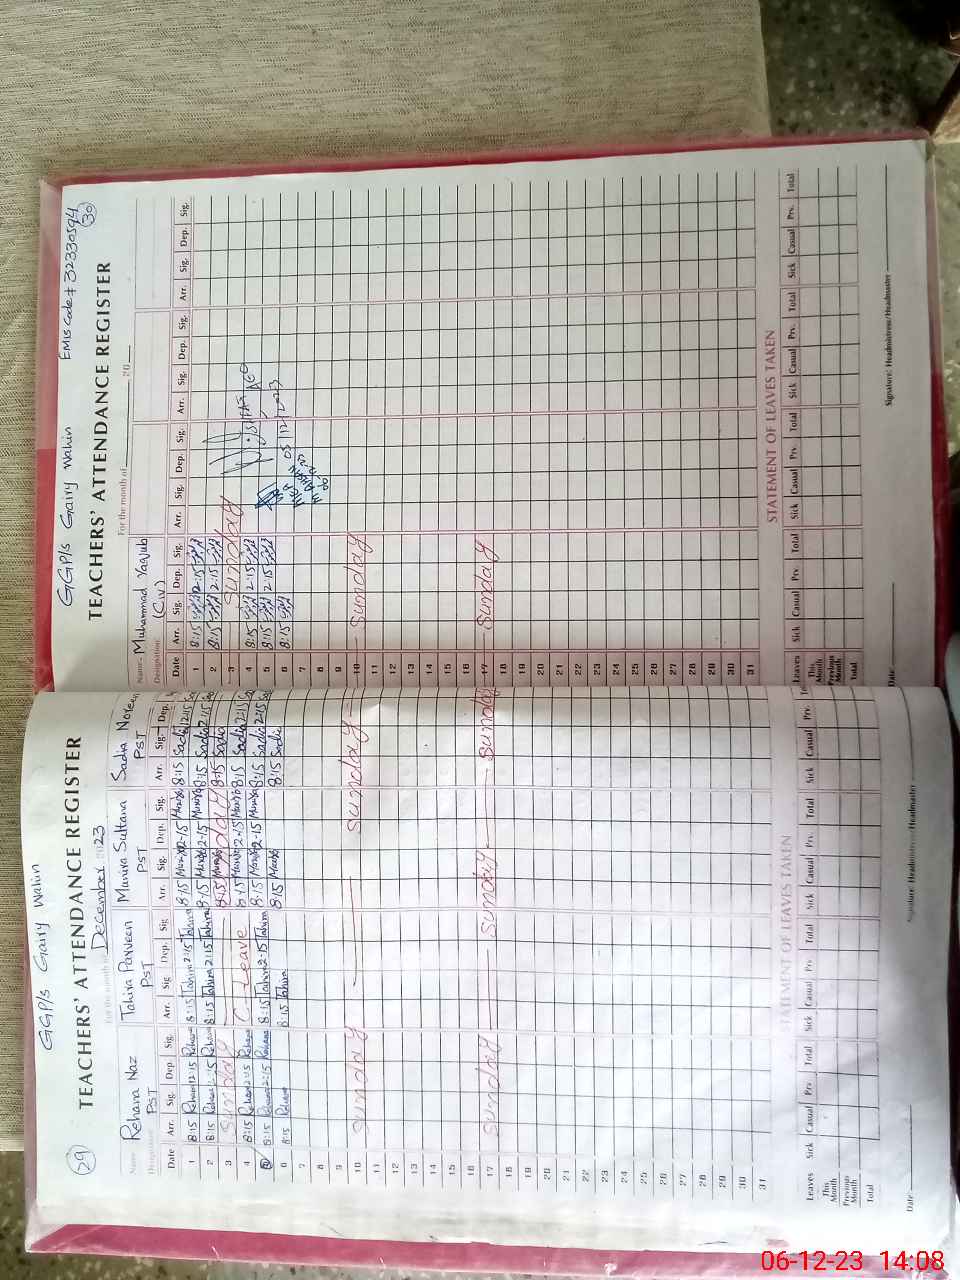 29
GGP/s Gairy Wahin
TEACHERS' ATTENDANCE REGISTER
For the month of December 2023
Name Rehana Naz Tahira Parveen Munira Sultana Sadia Noreen
Designation PST PST PST PST
Date Arr. Sig. Dep. Sig. Arr. Sig. Dep. Sig. Arr. Sig. Dep. Sig. Arr. Sig. Dep.
1 8:15 Rehana 2:15 Rehana 8:15 Tahira 2:15 Tahira 8:15 Munira 2-15 Munira 8:15 Sadia 2:15
2 8:15 Rehana 2:15 Rehana 8:15 Tahira 2:15 Tahira 8:15 Munira 2-15 Munira 8:15 Sadia 2:15
3 Sunday
4 8:15 Rehana 2:15 Rehana C-Leave 8:15 Munira 2-15 Munira 8:15 Sadia 2:15
5 8:15 Rehana 2:15 Rehana 8:15 Tahira 2-15 Tahira 8:15 Munira 2-15 Munira 8:15 Sadia 2:15
6 8:15 Rehana 8:15 Tahira 8:15 Munira 8:15 Sadia
7
8
9
10 Sunday Sunday
11
12
13
14
15
16
17 Sunday Sunday Sunday
18
19
20
21
22
23
24
25
26
27
28
29
30
31
STATEMENT OF LEAVES TAKEN
Leaves Sick Casual Prv. Total Sick Casual Prv. Total Sick Casual Prv. Total Sick Casual Prv.
This Month
Previous Month
Total
Date
Signature: Headmistress/Headmaster
GGP/s Gairy Wahin EMIS Code # 32330594
30
TEACHERS' ATTENDANCE REGISTER
For the month of 20
Name Muhammad Yaqub
Designation (C.iv)
Date Arr. Sig. Dep. Sig. Arr. Sig. Dep. Sig. Arr. Sig. Dep. Sig. Arr. Sig. Dep. Sig.
1 8:15 2-15
2 8:15 2:15
3 Sunday
4 8:15 2-15
5 8:15 2-15 05/12/2023
6 8:15
7
8
9
10 Sunday
11
12
13
14
15
16
17 Sunday
18
19
20
21
22
23
24
25
26
27
28
29
30
31
STATEMENT OF LEAVES TAKEN
Leaves Sick Casual Prv. Total Sick Casual Prv. Total Sick Casual Prv. Total Sick Casual Prv. Total
This Month
Previous Month
Total
Date
Signature: Headmistress/Headmaster
06-12-23 14:08